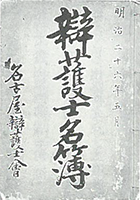 明治二十六年五月
辯護士名簿
名古屋辯護士會